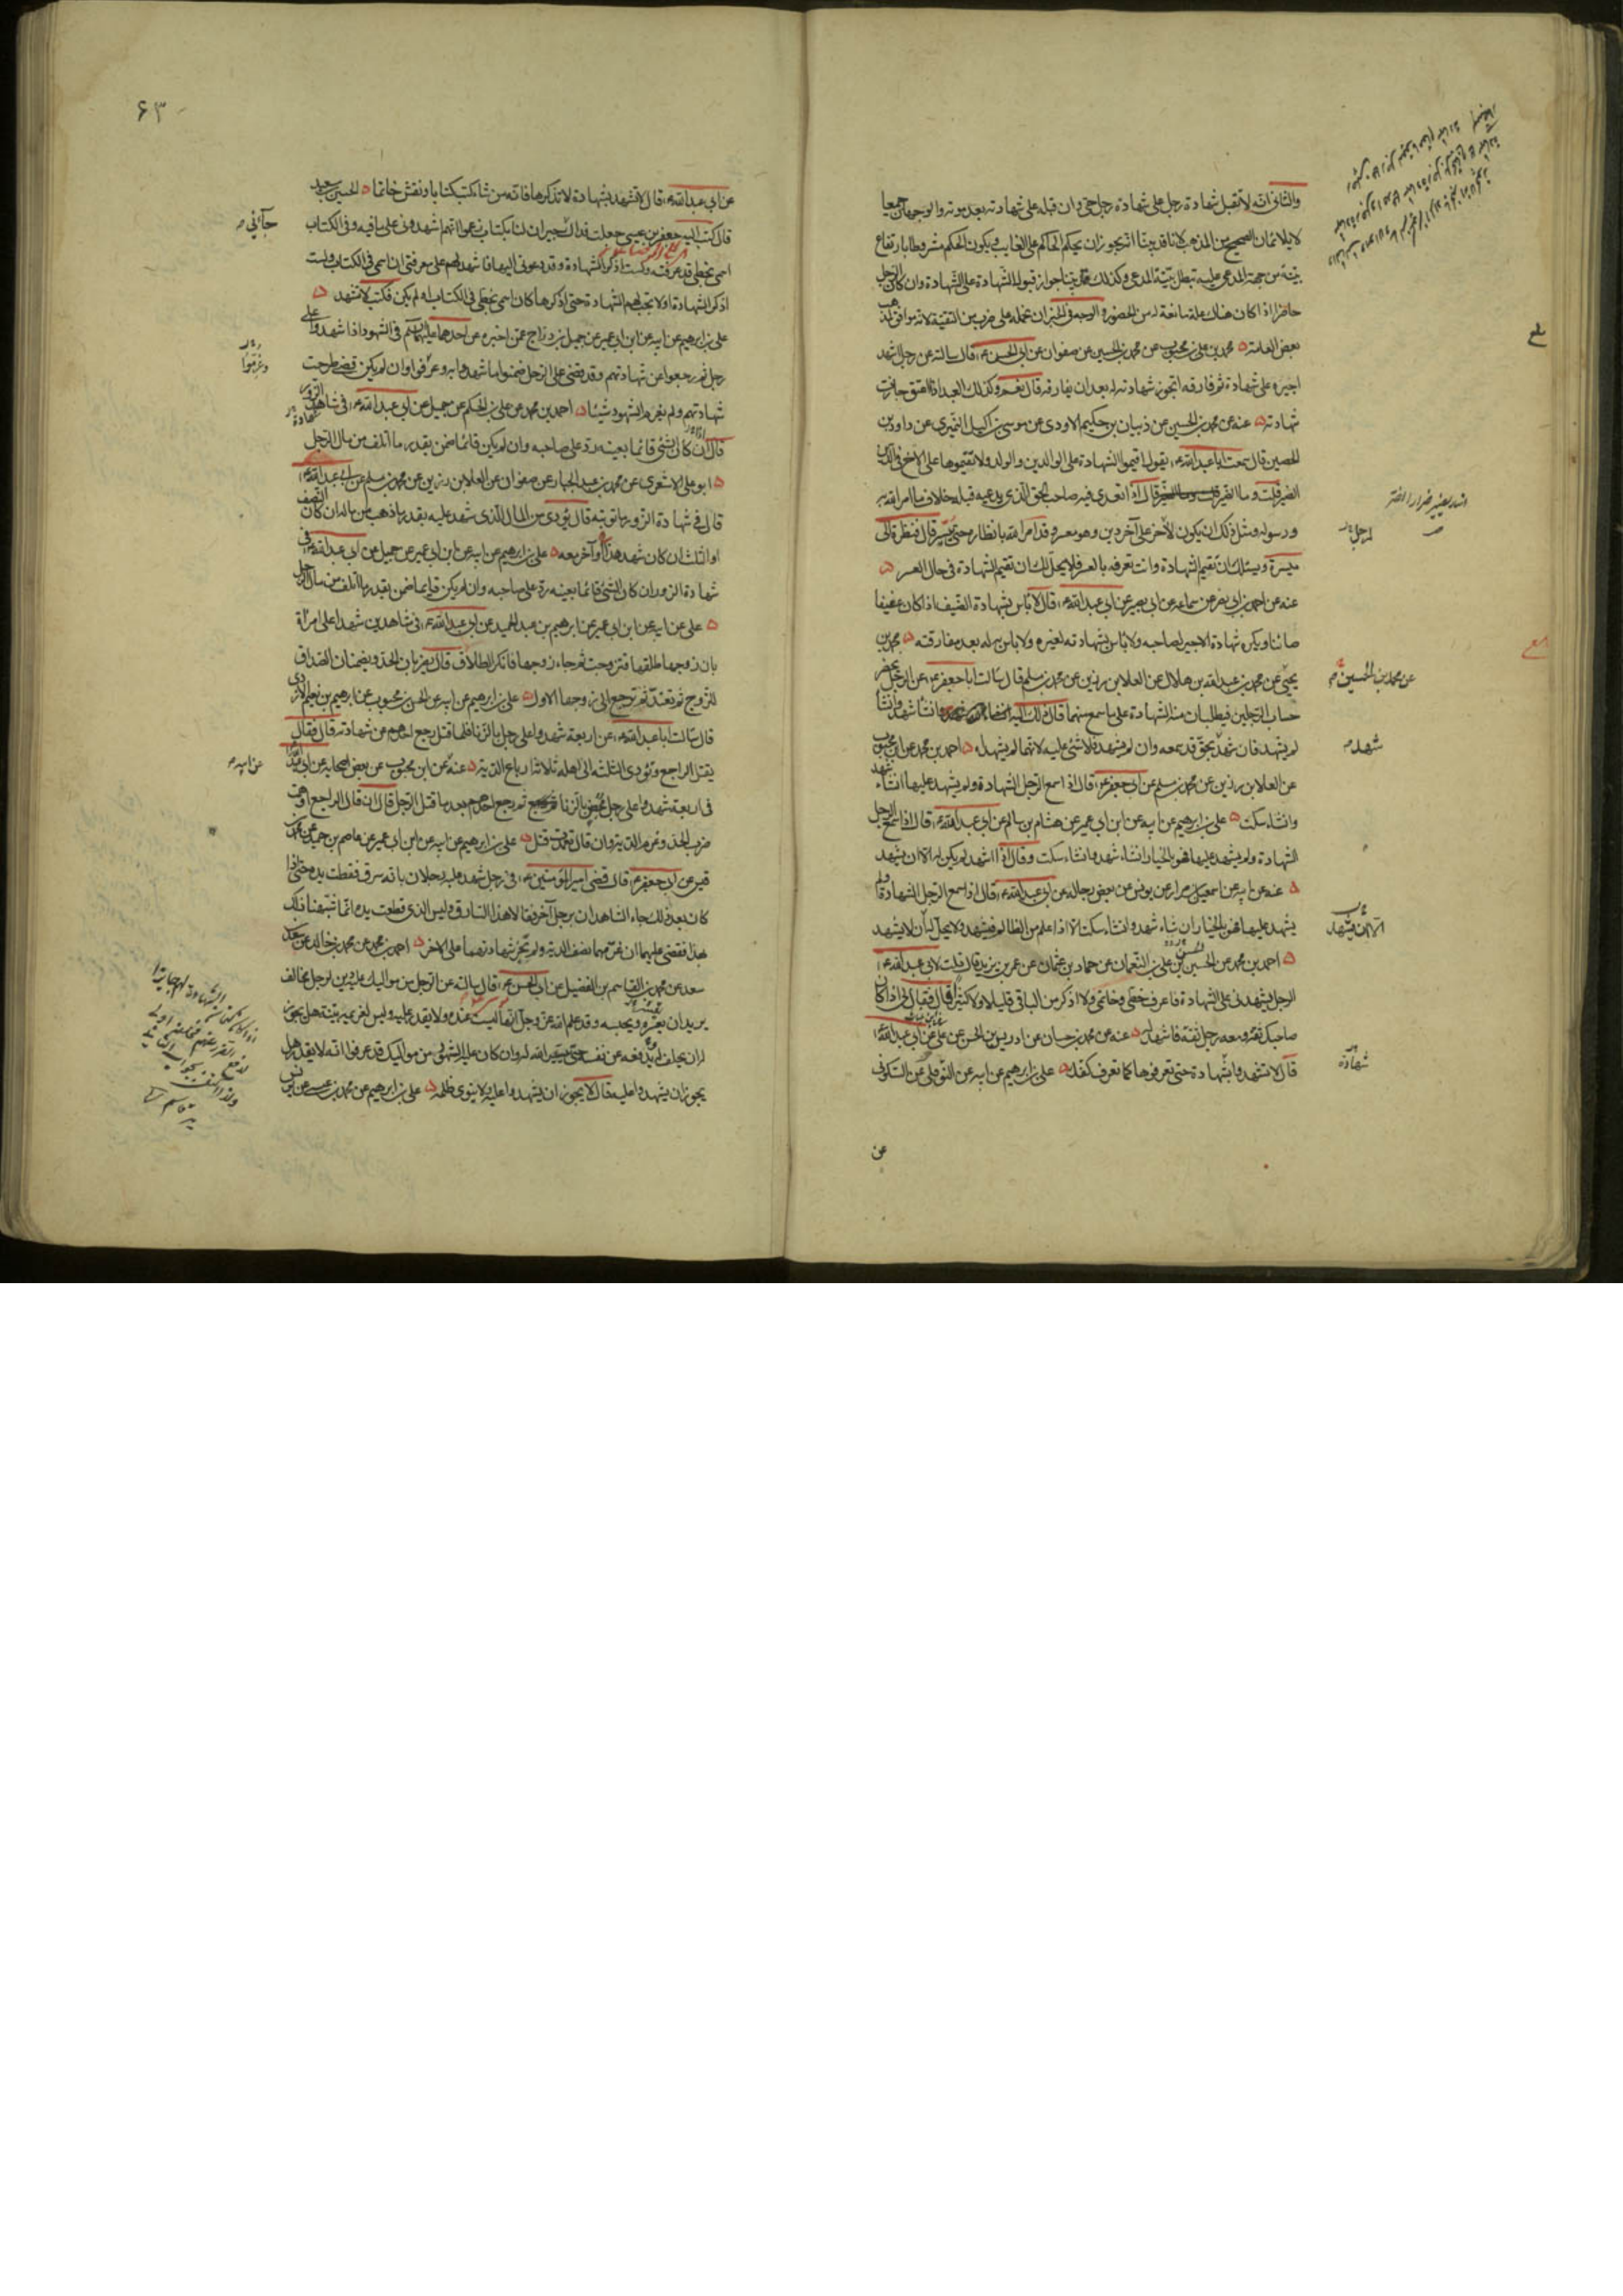 والثاني انه لا تقبل شهادة رجل على شهادة رجل حي وان قبله على شهادته بعد موته والوجهان جميعا
لا يلائمان الصحيح من المذهب لانا قد بينا انه يجوز ان يحكم الحاكم على الغايب ويكون الحكم مشروطا بارتفاع
بينة من جهة المدعى عليه تبطل بينة المدعي وكذلك قد بينا جواز قبول الشهادة على الشهادة وان كان الرجل
حاضرا اذا كان هناك علة مانعة له من الحضور والوجه في الخبران نحمله على ضرب من التقية لانه موافق لمذهب
بعض العامة محمد بن علي بن محبوب عن محمد بن الحسين عن صفوان عن ابي الحسن ع قال سالته عن رجل اشهد
اجيره على شهادة ثم فارقه اتجوز شهادته له بعد ان يفارقه قال نعم وكذلك العبد اذا اعتق جازت
شهادته عنه عن محمد بن الحسين عن ذبيان بن حكيم الاودي عن موسى بن اكيل النميري عن داود بن
الحصين قال سمعت ابا عبد الله ع يقول اقيموا الشهادة على الوالدين والولد ولا تقيموها على الاخ في الدين
الضير قلت وما الضير قال اذا تعدى فيه صاحب الحق الذي يدعيه قبله خلاف ما امر الله به
ورسوله ومثل ذلك ان يكون لاخر على آخر دين وهو معسر وقد امر الله بانظاره حتى تيسر قال فنظرة الى
ميسرة ويسئلك ان تقيم الشهادة وانت تعرفه بالعسر فلا يحل لك ان تقيم الشهادة في حال العسر
عنه عن احمد بن ابي نصر عن سماعه عن ابي بصير عن ابي عبد الله ع قال لا باس بشهادة الضيف اذا كان عفيفا
صائنا ويكره شهادة الاجير لصاحبه ولا باس بشهادته لغيره ولا باس به له بعد مفارقته محمد بن
يحيى عن محمد بن عبد الله بن هلال عن العلا بن رزين عن محمد بن مسلم قال سالت ابا جعفر ع عن الرجل يحضر
حساب الرجلين فيطلبان منه الشهادة على ما سمع منهما قال ذلك اليه ان شاء شهد وان شاء
لم يشهد فان شهد بحق قد سمعه وان لم يشهد فلا شئ عليه لانهما لم يشهداه احمد بن محمد عن ابن محبوب
عن العلا بن رزين عن محمد بن مسلم عن ابي جعفر ع قال اذا سمع الرجل الشهادة ولم يشهد عليها ان شاء شهد
وان شاء سكت علي بن ابرهيم عن ابيه عن ابن ابي عمير عن هشام بن سالم عن ابي عبد الله ع قال اذا سمع الرجل
الشهادة ولم يشهد عليها فهو بالخيار ان شاء شهد وان شاء سكت وقال اذا اشهد لم يكن له الا ان يشهد
عنه عن ابيه عن اسمعيل بن مرار عن يونس عن بعض رجاله عن ابي عبد الله ع قال اذا سمع الرجل الشهادة ولم
يشهد عليها فهو بالخيار ان شاء شهد وان شاء سكت الا اذا علم من الظالم فيشهد ولا يحل له ان لا يشهد
احمد بن محمد عن الحسين عن علي بن النعمان عن حماد بن عثمان عن عمر بن يزيد قال قلت لابي عبد الله ع
الرجل يشهدني على الشهادة فاعرف خطي وخاتمي ولا اذكر من الباقي قليلا ولا كثيرا قال فقال لي اذا كان
صاحبك ثقة ومعه رجل ثقة فاشهد له عنه عن محمد بن حسان عن ادريس بن الحسن عن علي عن ابي عبد الله ع
قال لا تشهدوا بشهادة حتى تعرفوها كما تعرف كفك علي بن ابرهيم عن ابيه عن النوفلي عن السكوني
عن
عن محمد بن الحسين
شهد
الا ان يشهد
شهادة
۶۳
عن ابي عبد الله ع قال لا تشهد بشهادة لا تذكرها فانه من شاء كتب كتابا ونقش خاتما الحسين بن سعيد
قال كتب اليه جعفر بن عيسى جعلت فداك جيران لنا بكتاب زعموا انهم اشهدوني على ما فيه وفي الكتاب
اسمي بخطي قد عرفته ولست اذكر الشهادة وقد دعوني اليها فاشهد لهم على معرفتي ان اسمي في الكتاب ولست
اذكر الشهادة او لا تجب لهم الشهادة حتى اذكرها كان اسمي بخطي في الكتاب او لم يكن فكتب لا تشهد
علي بن ابرهيم عن ابيه عن ابن ابي عمير عن جميل بن دراج عمن اخبره عن احدهما عليهما السلم في الشهود اذا شهدوا على
رجل ثم رجعوا عن شهادتهم وقد قضي على الرجل ضمنوا ما شهدوا به وغرموا وان لم يكن قضي طرحت
شهادتهم ولم يغرم الشهود شيئا احمد بن محمد عن علي بن الحكم عن جميل عن ابي عبد الله ع في شاهد الزور
قال ان كان الشئ قائما بعينه رد على صاحبه وان لم يكن قائما ضمن بقدر ما اتلف من مال الرجل
ابو علي الاشعري عن محمد بن عبد الجبار عن صفوان عن العلا بن رزين عن محمد بن مسلم عن ابي عبد الله ع
قال في شهادة الزور ما توبته قال يؤدي من المال الذي شهد عليه بقدر ما ذهب من ماله ان كان النصف
او الثلث ان كان شهد هذا وآخر معه علي بن ابرهيم عن ابيه عن ابن ابي عمير عن جميل عن ابي عبد الله ع في
شهادة الزور ان كان الشئ قائما بعينه رد على صاحبه وان لم يكن قايما ضمن بقدر ما اتلف من مال الرجل
علي عن ابيه عن ابن ابي عمير عن ابرهيم بن عبد الحميد عن ابي عبد الله ع في شاهدين شهدا على امراة
بان زوجها طلقها فتزوجت ثم جاء زوجها فانكر الطلاق قال يضربان الحد ويضمنان الصداق
للزوج ثم تعتد ثم ترجع الى زوجها الاول علي بن ابرهيم عن ابيه عن الحسن بن محبوب عن ابرهيم بن نعيم الازدي
قال سالت ابا عبد الله ع عن اربعة شهدوا على رجل بالزنا فلما قتل رجع احدهم عن شهادته قال فقال
يقتل الراجع ويؤدي الثلثة الى اهله ثلاثة ارباع الدية عنه عن ابن محبوب عن بعض اصحابه عن ابي عبد الله
في اربعة شهدوا على رجل محصن بالزنا ثم رجع احدهم بعد ما قتل الرجل قال ان قال الراجع اوهمت
ضرب الحد وغرم الدية وان قال تعمدت قتل علي بن ابرهيم عن ابيه عن ابن ابي عمير عن عاصم بن حميد عن محمد بن
قيس عن ابي جعفر ع قال قضى امير المؤمنين ع في رجل شهد عليه رجلان بانه سرق فقطعت يده حتى اذا
كان بعد ذلك جاء الشاهدان برجل آخر فقالا هذا السارق وليس الذي قطعت يده انما شبهنا ذلك
بهذا فقضى عليهما ان غرمهما نصف الدية ولم يجز شهادتهما على الاخر احمد بن محمد عن محمد بن خالد عن سعد بن
سعد عن محمد بن القاسم بن الفضيل عن ابي الحسن ع قال سالته عن الرجل من مواليك عليه دين لرجل مخالف
يريد ان يعسره ويحبسه وقد علم الله عز وجل انها ليست عنده ولا يقدر عليه وليس لغريمه بينة هل يجوز
له ان يحلف له يدفعه عن نفسه حتى ييسر الله له وان كان عليه الشهود من مواليك قد عرفوا انه لا يقدر هل
يجوز ان يشهدوا عليه قال لا يجوز ان يشهدوا عليه ولا ينوي ظلمه علي بن ابرهيم عن محمد بن عيسى عن يونس
جاؤني
وغرموا
عن ابيه